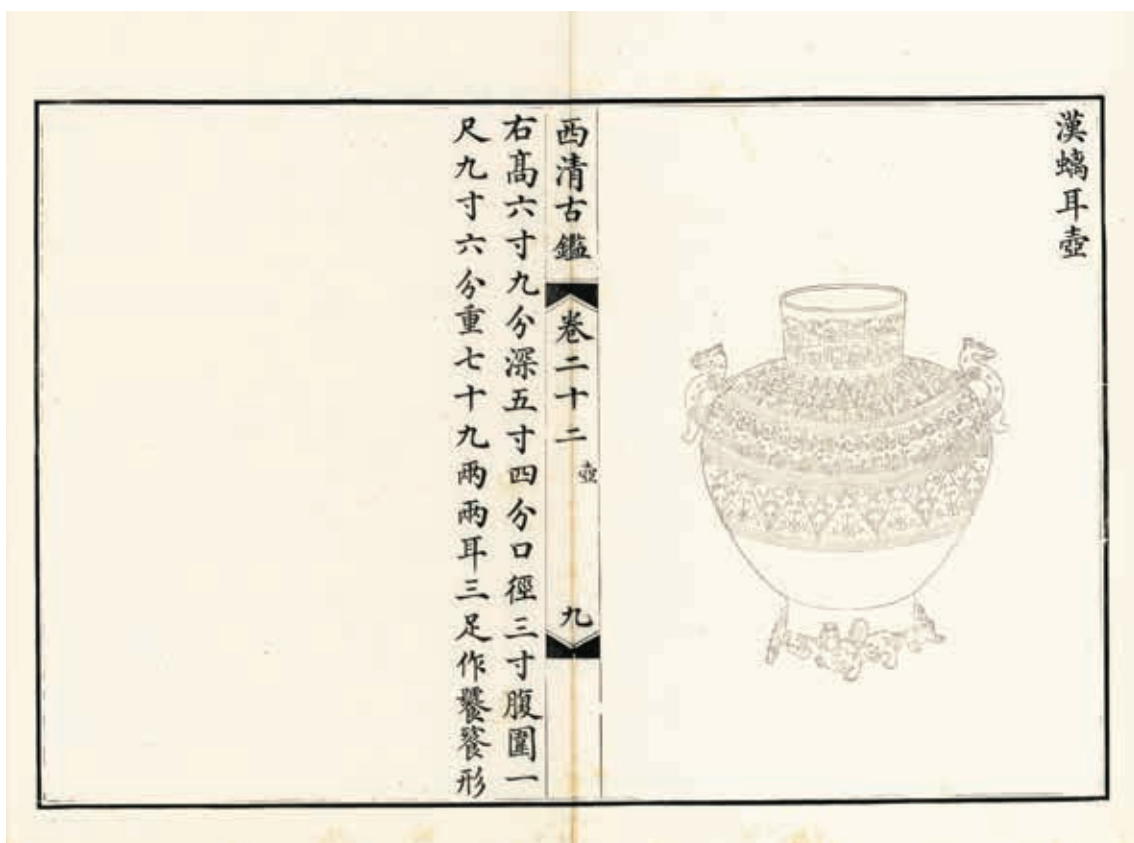 漢螭耳壺
西清古鑑
卷二十二
壺
九
右高六寸九分深五寸四分口徑三寸腹圍一
尺九寸六分重七十九兩兩耳三足作饕餮形